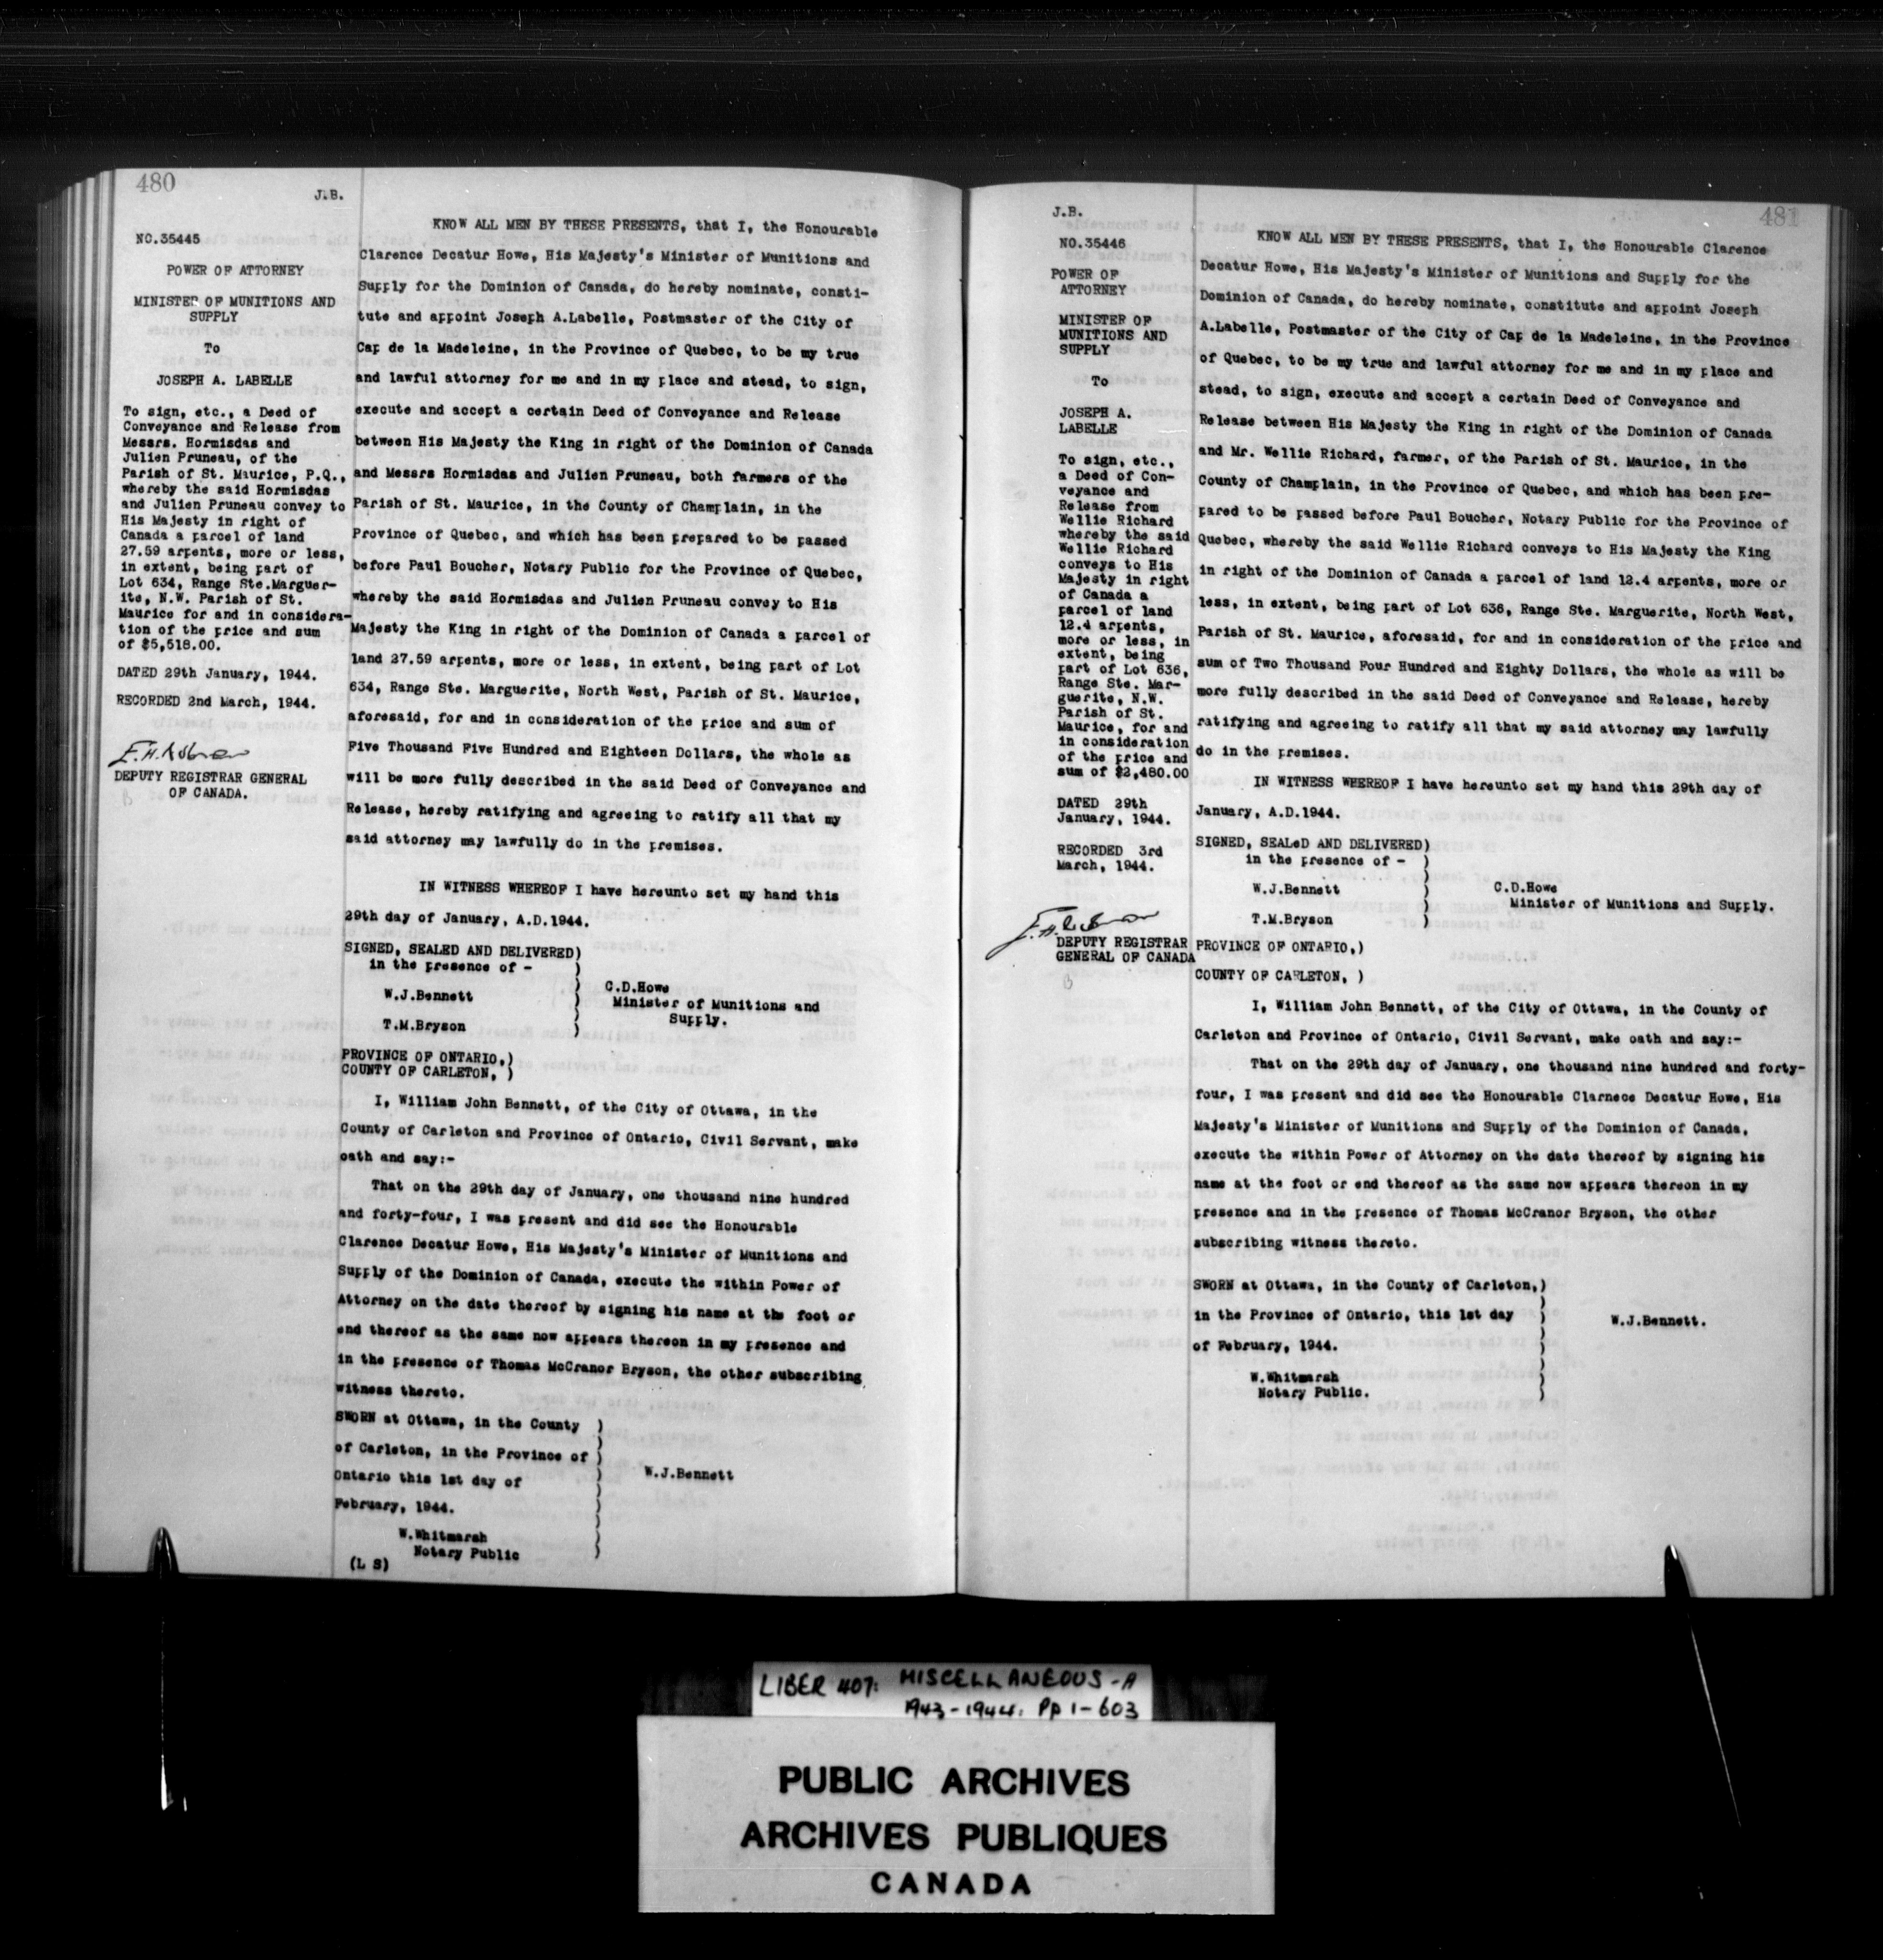 480
J.B.
NO.35445
POWER OF ATTORNEY
MINISTER OF MUNITIONS AND
SUPPLY
To
JOSEPH A. LABELLE
To sign, etc., a Deed of
Conveyance and Release from
Messrs. Hormisdas and
Julien Pruneau, of the
Parish of St. Maurice, P.Q.,
whereby the said Hormisdas
and Julien Pruneau convey to
His Majesty in right of
Canada a parcel of land
27.59 arpents, more or less,
in extent, being part of
Lot 634, Range Ste.Marguer-
ite, N.W. Parish of St.
Maurice for and in considera-
tion of the price and sum
of $5,518.00.
DATED 29th January, 1944.
RECORDED 2nd March, 1944.
DEPUTY REGISTRAR GENERAL
OF CANADA.
KNOW ALL MEN BY THESE PRESENTS, that I, the Honourable
Clarence Decatur Howe, His Majesty's Minister of Munitions and
Supply for the Dominion of Canada, do hereby nominate, consti-
tute and appoint Joseph A.Labelle, Postmaster of the City of
Cap de la Madeleine, in the Province of Quebec, to be my true
and lawful attorney for me and in my place and stead, to sign,
execute and accept a certain Deed of Conveyance and Release
between His Majesty the King in right of the Dominion of Canada
and Messrs Hormisdas and Julien Pruneau, both farmers of the
Parish of St. Maurice, in the County of Champlain, in the
Province of Quebec, and which has been prepared to be passed
before Paul Boucher, Notary Public for the Province of Quebec,
whereby the said Hormisdas and Julien Pruneau convey to His
Majesty the King in right of the Dominion of Canada a parcel of
land 27.59 arpents, more or less, in extent, being part of Lot
634, Range Ste. Marguerite, North West, Parish of St. Maurice,
aforesaid, for and in consideration of the price and sum of
Five Thousand Five Hundred and Eighteen Dollars, the whole as
will be more fully described in the said Deed of Conveyance and
Release, hereby ratifying and agreeing to ratify all that my
said attorney may lawfully do in the premises.
IN WITNESS WHEREOF I have hereunto set my hand this
29th day of January, A.D.1944.
SIGNED, SEALED AND DELIVERED)
in the presence of - )
W.J.Bennett
T.M.Bryson )
C.D.Howe
Minister of Munitions and
Supply.
PROVINCE OF ONTARIO,)
COUNTY OF CARLETON, )
I, William John Bennett, of the City of Ottawa, in the
County of Carleton and Province of Ontario, Civil Servant, make
oath and say:-
That on the 29th day of January, one thousand nine hundred
and forty-four, I was present and did see the Honourable
Clarence Decatur Howe, His Majesty's Minister of Munitions and
Supply of the Dominion of Canada, execute the within Power of
Attorney on the date thereof by signing his name at the foot or
end thereof as the same now appears thereon in my presence and
in the presence of Thomas McCranor Bryson, the other subscribing
witness thereto.
SWORN at Ottawa, in the County )
of Carleton, in the Province of )
Ontario this 1st day of )
February, 1944. )
W.J.Bennett
W.Whitmarsh
Notary Public )
(L S)
481
J.B.
NO.35446
POWER OF
ATTORNEY
MINISTER OF
MUNITIONS AND
SUPPLY
To
JOSEPH A.
LABELLE
To sign, etc.,
a Deed of Con-
veyance and
Release from
Wellie Richard
whereby the said
Wellie Richard
conveys to His
Majesty in right
of Canada a
parcel of land
12.4 arpents,
more or less, in
extent, being
part of Lot 636,
Range Ste. Mar-
guerite, N.W.
Parish of St.
Maurice, for and
in consideration
of the price and
sum of $2,480.00
DATED 29th
January, 1944.
RECORDED 3rd
March, 1944.
DEPUTY REGISTRAR
GENERAL OF CANADA
KNOW ALL MEN BY THESE PRESENTS, that I, the Honourable Clarence
Decatur Howe, His Majesty's Minister of Munitions and Supply for the
Dominion of Canada, do hereby nominate, constitute and appoint Joseph
A.Labelle, Postmaster of the City of Cap de la Madeleine, in the Province
of Quebec, to be my true and lawful attorney for me and in my place and
stead, to sign, execute and accept a certain Deed of Conveyance and
Release between His Majesty the King in right of the Dominion of Canada
and Mr. Wellie Richard, farmer, of the Parish of St. Maurice, in the
County of Champlain, in the Province of Quebec, and which has been pre-
pared to be passed before Paul Boucher, Notary Public for the Province of
Quebec, whereby the said Wellie Richard conveys to His Majesty the King
in right of the Dominion of Canada a parcel of land 12.4 arpents, more or
less, in extent, being part of Lot 636, Range Ste. Marguerite, North West,
Parish of St. Maurice, aforesaid, for and in consideration of the price and
sum of Two Thousand Four Hundred and Eighty Dollars, the whole as will be
more fully described in the said Deed of Conveyance and Release, hereby
ratifying and agreeing to ratify all that my said attorney may lawfully
do in the premises.
IN WITNESS WHEREOF I have hereunto set my hand this 29th day of
January, A.D.1944.
SIGNED, SEALeD AND DELIVERED)
in the presence of - )
W.J.Bennett )
T.M.Bryson )
C.D.Howe
Minister of Munitions and Supply.
PROVINCE OF ONTARIO,)
COUNTY OF CARLETON, )
I, William John Bennett, of the City of Ottawa, in the County of
Carleton and Province of Ontario, Civil Servant, make oath and say:-
That on the 29th day of January, one thousand nine hundred and forty-
four, I was present and did see the Honourable Clarnece Decatur Howe, His
Majesty's Minister of Munitions and Supply of the Dominion of Canada,
execute the within Power of Attorney on the date thereof by signing his
name at the foot or end thereof as the same now appears thereon in my
presence and in the presence of Thomas McCranor Bryson, the other
subscribing witness thereto.
SWORN at Ottawa, in the County of Carleton,)
in the Province of Ontario, this 1st day )
of February, 1944. )
W.J.Bennett.
W.Whitmarsh
Notary Public. )
LIBER 407: MISCELLANEOUS-A
1943-1944: Pp 1-603
PUBLIC ARCHIVES
ARCHIVES PUBLIQUES
CANADA